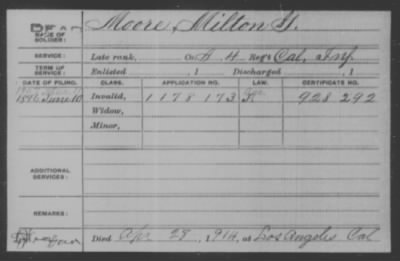 DEAD
NAME OF SOLDIER: Moore, Milton G.
SERVICE: Late rank, Co. A, 4, Reg't Cal. Inf.
TERM OF SERVICE: Enlisted , 1 Discharged , 1
DATE OF FILING. CLASS. APPLICATION NO. LAW. CERTIFICATE NO.
1896 June 10 Invalid, 1178 173 928 292
Widow,
Minor,
ADDITIONAL SERVICES:
REMARKS:
Died Apr 23, 1914, at Los Angeles Cal